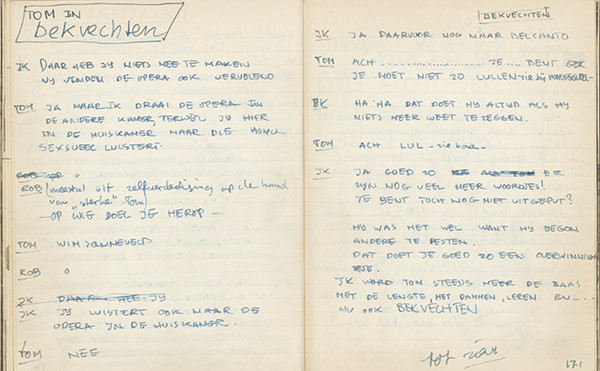 TOM IN
bekvechten
JK DAAR HEB JY NIETS MEE TE MAKEN
WY VINDEN DE OPERA OOK VERVELEND
TOM JA MAAR IK DRAAI DE OPERA IN
DE ANDERE KAMER, TERWIJL JY HIER
IN DE HUISKAMER NAAR DIE HOMO
SEKSUEEL LUISTERT.
ROB
ROB (meestal uit zelfverdediging op de hand
van "sterke" Tom)
- OP WIE DOEL JE HEROP -
TOM WIM SONNEVELD
ROB O
JK DAAR HEB JY
JK JY LUISTERT OOK NAAR DE
OPERA IN DE HUISKAMER.
TOM NEE
BEKVECHTEN
JK JA DAARVOOR NOG NAAR BELCANTO
TOM ACH .................. JE .... BENT GEK
JE MOET NIET ZO LULLEN - zie bij HOMOSEXUEEL -
JK HA HA DAT DOET HY ALTYD ALS HY
NIETS MEER WEET TE ZEGGEN.
TOM ACH LUL - zie boven -
JK JA GOED ZO ER
ZYN NOG VEEL MEER WOORDJES!
JE BENT TOCH NOG NIET UITGEPUT?
WAS HET WEL WANT HY BEGON
ANDERE TE PESTEN.
DAT DOET JE GOED ZO EEN OVERWINNIN
JK WORD TOM STEEDS MEER DE BAAS
MET DE LENGTE, MET DAMMEN, LEREN EN....
NU OOK BEKVECHTEN
tot ziens
171